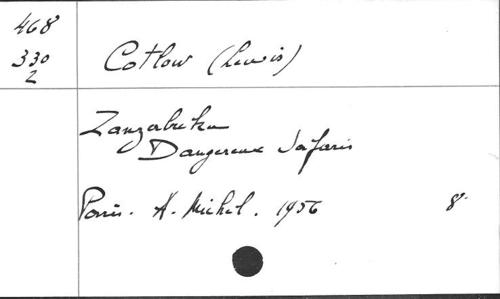 468
330
2
Cotlow (Lewis)
Zanzabuku
Dangereux Safaris
Paris. A. Michel. 1956 8°